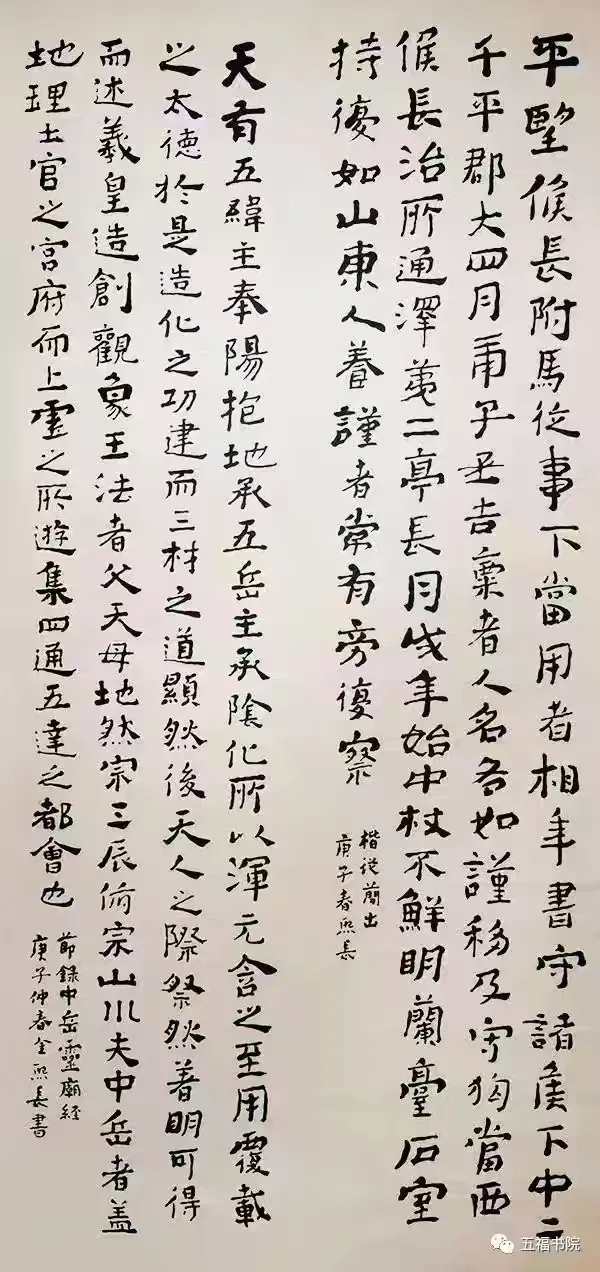 平望候長附馬從事下當用者相年書守諸侯下中二
千平郡大四月甫子丑吉稟者人名各如謹移及守狗當西
候長治所通澤第二亭長月戌年始中杖不鮮明蘭臺石室
持復如山東人養謹者常有旁復察
楷從簡出
庚子春熙長
天有五緯主奉陽抱地承五岳主承陰化所以渾元含之至用覆載
之太德於是造化之功建而三材之道顯然後天人之際祭然著明可得
而述羲皇造創觀象王法者父天母地然宗三辰俯宗山川夫中岳者盖
地理土官之宮府而上靈之所遊集四通五達之都會也
節錄中岳靈廟經
庚子仲春金熙長書
五福书院